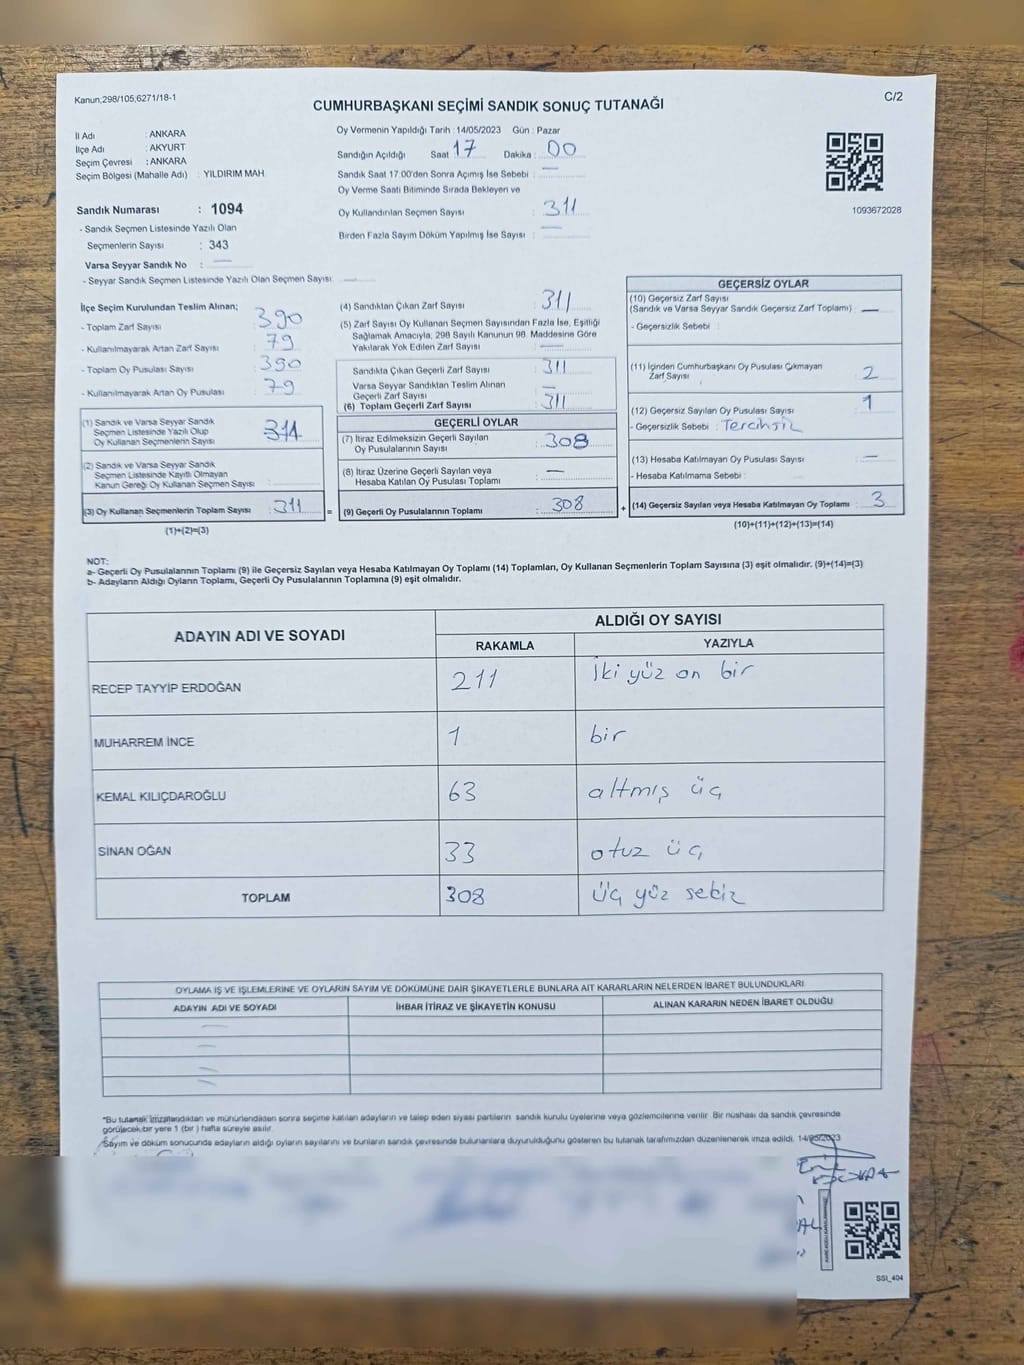 Kanun;298/105;6271/18-1
C/2
CUMHURBAŞKANI SEÇİMİ SANDIK SONUÇ TUTANAĞI
İl Adı : ANKARA
İlçe Adı : AKYURT
Seçim Çevresi : ANKARA
Seçim Bölgesi (Mahalle Adı) : YILDIRIM MAH.
Sandık Numarası : 1094
- Sandık Seçmen Listesinde Yazılı Olan
Seçmenlerin Sayısı : 343
Varsa Seyyar Sandık No : —
- Seyyar Sandık Seçmen Listesinde Yazılı Olan Seçmen Sayısı: —
Oy Vermenin Yapıldığı Tarih :14/05/2023 Gün : Pazar
Sandığın Açıldığı Saat 17 Dakika : 00
Sandık Saat 17.00'den Sonra Açımış İse Sebebi : —
Oy Verme Saati Bitiminde Sırada Bekleyen ve
Oy Kullandırılan Seçmen Sayısı : 311
Birden Fazla Sayım Döküm Yapılmış İse Sayısı : —
1093672028
İlçe Seçim Kurulundan Teslim Alınan;
- Toplam Zarf Sayısı 390
- Kullanılmayarak Artan Zarf Sayısı 79
- Toplam Oy Pusulası Sayısı 390
- Kullanılmayarak Artan Oy Pusulası 79
(1) Sandık ve Varsa Seyyar Sandık
Seçmen Listesinde Yazılı Olup
Oy Kullanan Seçmenlerin Sayısı 311
(2) Sandık ve Varsa Seyyar Sandık
Seçmen Listesinde Kayıtlı Olmayan
Kanun Gereği Oy Kullanan Seçmen Sayısı :
(3) Oy Kullanan Seçmenlerin Toplam Sayısı : 311 =
(1)+(2)=(3)
(4) Sandıktan Çıkan Zarf Sayısı 311
(5) Zarf Sayısı Oy Kullanan Seçmen Sayısından Fazla İse, Eşitliği
Sağlamak Amacıyla, 298 Sayılı Kanunun 98. Maddesine Göre
Yakılarak Yok Edilen Zarf Sayısı : —
Sandıkta Çıkan Geçerli Zarf Sayısı 311
Varsa Seyyar Sandıktan Teslim Alınan
Geçerli Zarf Sayısı —
(6) Toplam Geçerli Zarf Sayısı 311
GEÇERLİ OYLAR
(7) İtiraz Edilmeksizin Geçerli Sayılan
Oy Pusulalarının Sayısı : 308
(8) İtiraz Üzerine Geçerli Sayılan veya
Hesaba Katılan Oy Pusulası Toplamı : —
(9) Geçerli Oy Pusulalarının Toplamı : 308 +
GEÇERSİZ OYLAR
(10) Geçersiz Zarf Sayısı
(Sandık ve Varsa Seyyar Sandık Geçersiz Zarf Toplamı) : —
- Geçersizlik Sebebi :
(11) İçinden Cumhurbaşkanı Oy Pusulası Çıkmayan
Zarf Sayısı 2
(12) Geçersiz Sayılan Oy Pusulası Sayısı 1
- Geçersizlik Sebebi : Tercihsiz
(13) Hesaba Katılmayan Oy Pusulası Sayısı : —
- Hesaba Katılmama Sebebi :
(14) Geçersiz Sayılan veya Hesaba Katılmayan Oy Toplamı : 3
(10)+(11)+(12)+(13)=(14)
NOT:
a- Geçerli Oy Pusulalarının Toplamı (9) ile Geçersiz Sayılan veya Hesaba Katılmayan Oy Toplamı (14) Toplamları, Oy Kullanan Seçmenlerin Toplam Sayısına (3) eşit olmalıdır. (9)+(14)=(3)
b- Adayların Aldığı Oyların Toplamı, Geçerli Oy Pusulalarının Toplamına (9) eşit olmalıdır.
ADAYIN ADI VE SOYADI
ALDIĞI OY SAYISI
RAKAMLA YAZIYLA
RECEP TAYYİP ERDOĞAN 211 iki yüz on bir
MUHARREM İNCE 1 bir
KEMAL KILIÇDAROĞLU 63 altmış üç
SİNAN OĞAN 33 otuz üç
TOPLAM 308 üç yüz sekiz
OYLAMA İŞ VE İŞLEMLERİNE VE OYLARIN SAYIM VE DÖKÜMÜNE DAİR ŞİKAYETLERLE BUNLARA AİT KARARLARIN NELERDEN İBARET BULUNDUKLARI
ADAYIN ADI VE SOYADI İHBAR İTİRAZ VE ŞİKAYETİN KONUSU ALINAN KARARIN NEDEN İBARET OLDUĞU
*Bu tutanak imzalandıktan ve mühürlendikten sonra seçime katılan adayların ve talep eden siyasi partilerin sandık kurulu üyelerine veya gözlemcilerine verilir. Bir nüshası da sandık çevresinde
görülecek bir yere 1 (bir ) hafta süreyle asılır.
Sayım ve döküm sonucunda adayların aldığı oyların sayılarını ve bunların sandık çevresinde bulunanlara duyurulduğunu gösteren bu tutanak tarafımızdan düzenlenerek imza edildi. 14/05/2023
SSI_404